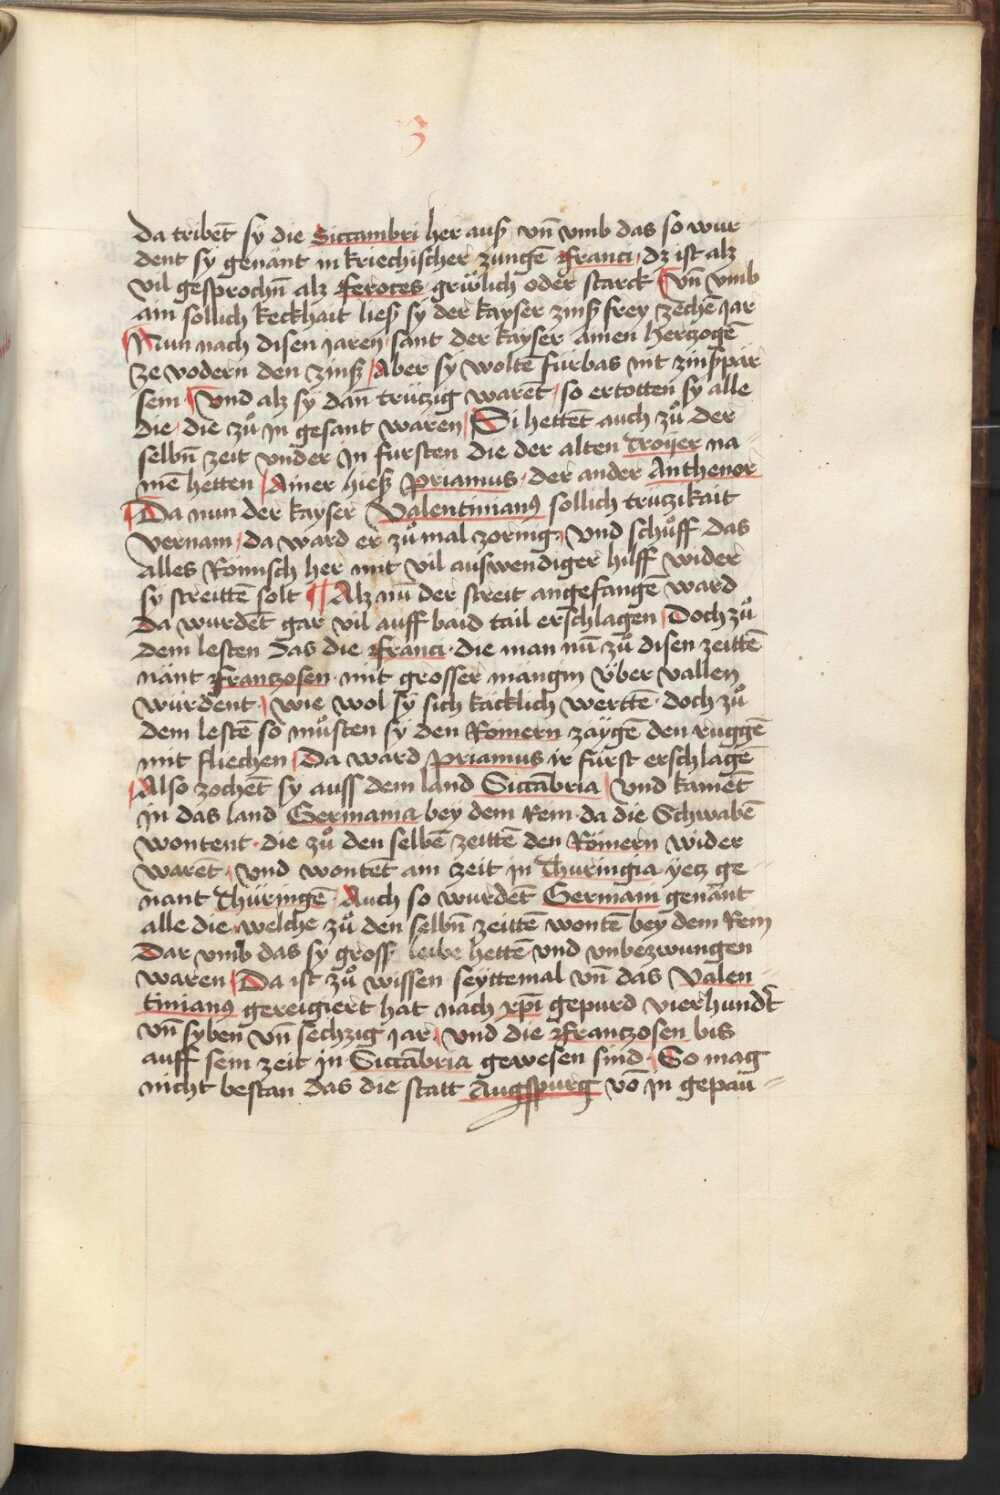 3
da tribēt sy die Siccambri her auß vn̄ vmb das so wur
dent sy genant in kriechischer zungē Franci, dz ist alz
vil gesprochn̄ alz feroces grülich oder starck Vn̄ vmb
ain sollich keckhait ließ sy der kayser zinß frey zechē jar
Nun nach disen jaren sant der kayser ainen hertzogē
ze vodern den zinß Aber sy woltē fürbas nit zinßpär
sein Vnd alz sy dan̄ trützig warēt so ertotten sy alle
die die zuͦ jn gesant waren Si hettēt auch zuͦ der
selbn̄ zeit vnder jn fürsten die der alten Troyer na
mē hetten Ainer hieß Priamus der ander Anthenor
Da nun der kayser Valentinianꝰ sollich trützikait
vernam da ward er zuͦ mal zornig vnd schuͦff das
alles Römisch her mit vil auswendiger hilff wider
sy streittē solt ¶ Alz nū der streit angefangē ward
da wurdēt gar vil auff baid tail erschlagen Doch zuͦ
dem lesten das die Franci die man nū zuͦ disen zeittē
nänt Frantzosen mit grosser mängin über vallen
würdent wie wol sy sich käcklich werttē doch zuͦ
dem lestē so muͦsten sy den Römern zaygē den ruggē
mit fliechen Da ward Priamus ir fürst erschlagē
Also zochēt sy auss dem land Siccābria vnd kamēt
in das land Germania bey dem Rein da die Schwabē
wontent die zuͦ den selbē zeittē den Römern wider
warēt vnd wontēt ain zeit in Thuringia yetz ge
nant Thüringē Auch so wurdēt Germani genant
alle die welche zuͦ den selbn̄ zeittē wontē bey dem Rein
Dar vmb das sy gross leibe hettē vnd vnbezwungen
waren Da ist zuͦ wissen seyttemal vn̄ das Valen
tinianꝰ gereigiert hat nach xp̄i gepurd vierhundt
vn̄ syben vn̄ sechzig jar vnd die Frantzosen bis
auff sein zeit in Siccābria gewesen sind So mag
nicht bestan das die statt Augspurg vō jn gepau